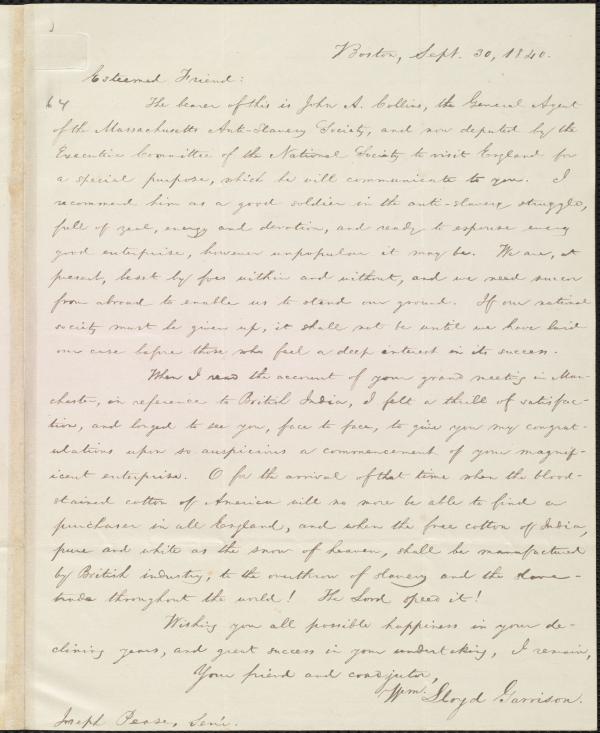 Boston, Sept. 30, 1840.
Esteemed Friend:
The bearer of this is John A. Collins, the General Agent
of the Massachusetts Anti-Slavery Society, and now deputed by the
Executive Committee of the National Society to visit England for
a special purpose, which he will communicate to you. I
recommend him as a good soldier in the anti-slavery struggle,
full of zeal, energy and devotion, and ready to espouse every
good enterprise, however unpopular it may be. We are, at
present, beset by foes within and without, and we need succor
from abroad to enable us to stand our ground. If our national
society must be given up, it shall not be until we have laid
our case before those who feel a deep interest in its success.
When I read the account of your grand meeting in Man-
chester, in reference to British India, I felt a thrill of satisfac-
tion, and longed to see you, face to face, to give you my congrat-
ulations upon so auspicious a commencement of your magnif-
icent enterprise. O for the arrival of that time when the blood-
stained cotton of America will no more be able to find a
purchaser in all England, and when the free cotton of India,
pure and white as the snow of heaven, shall be manufactured
by British industry, to the overthrow of slavery and the slave-
trade throughout the world! The Lord speed it!
Wishing you all possible happiness in your de-
clining years, and great success in your undertaking, I remain,
Your friend and coadjutor,
Wm. Lloyd Garrison.
Joseph Pease, Senr.